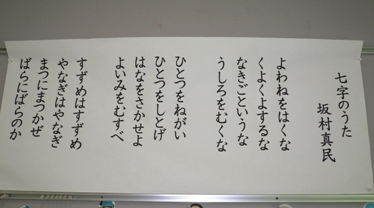 七字のうた
坂村真民
よわねをはくな
くよくよするな
なきごというな
うしろをむくな
ひとつをねがい
ひとつをしとげ
はなをさかせよ
よいみをむすべ
すずめはすずめ
やなぎはやなぎ
まつにまつかぜ
ばらにばらのか